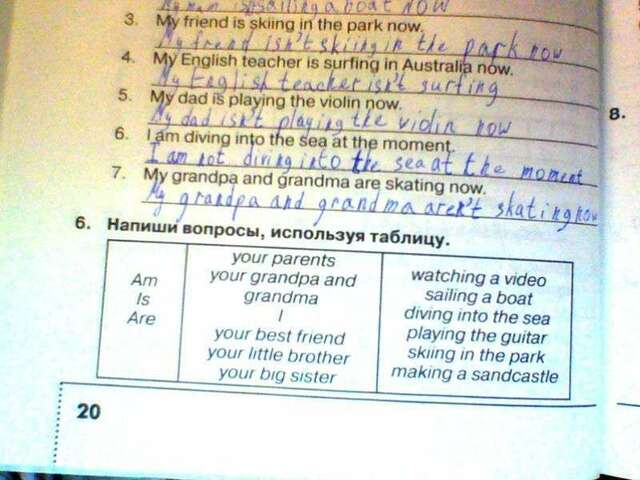 isn't sailing a boat now
3. My friend is skiing in the park now.
My frend isn't skiing in the park now
4. My English teacher is surfing in Australia now.
My English teacher isn't surfing
5. My dad is playing the violin now.
My dad isn't playing the violin now
6. I am diving into the sea at the moment.
I am not diving into the sea at the moment
7. My grandpa and grandma are skating now.
My grandpa and grandma aren't skating now
8.
6. Напиши вопросы, используя таблицу.
Am
Is
Are
your parents
your grandpa and
grandma
I
your best friend
your little brother
your big sister
watching a video
sailing a boat
diving into the sea
playing the guitar
skiing in the park
making a sandcastle
20